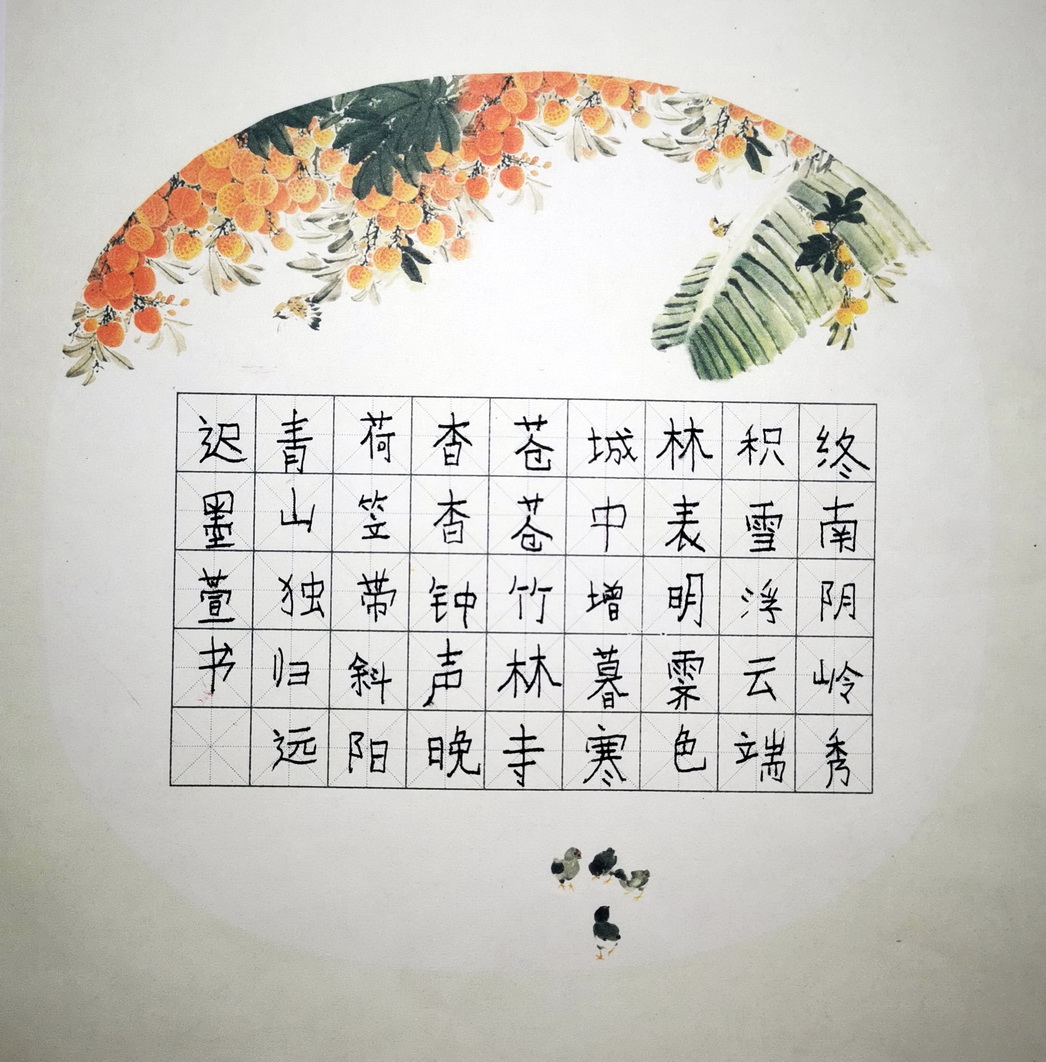 终南阴岭秀
积雪浮云端
林表明霁色
城中增暮寒
苍苍竹林寺
杳杳钟声晚
荷笠带斜阳
青山独归远
迟墨萱书